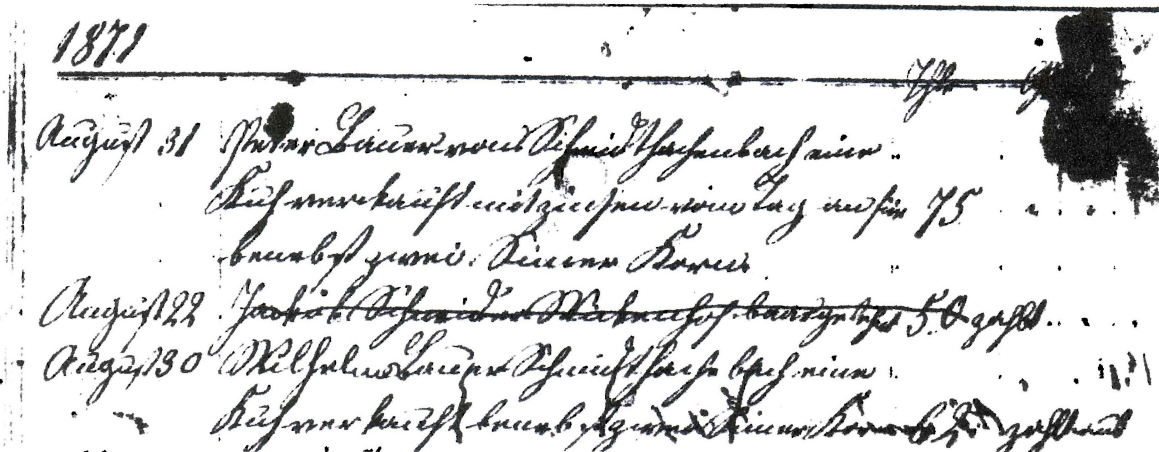 1871
Thlr
August 31 Peter Bauer von Schmidthachenbach eine
Kuh verkauft mit zinsen vom Tag an für 75
benebst zwei Simer Korn
August 22 Jakob Schneider baar geld 50 zahlt
August 30 Wilhelm Bauer Schmidthachenbach eine
Kuh verkauft benebst zwei Simer Korn zahlt